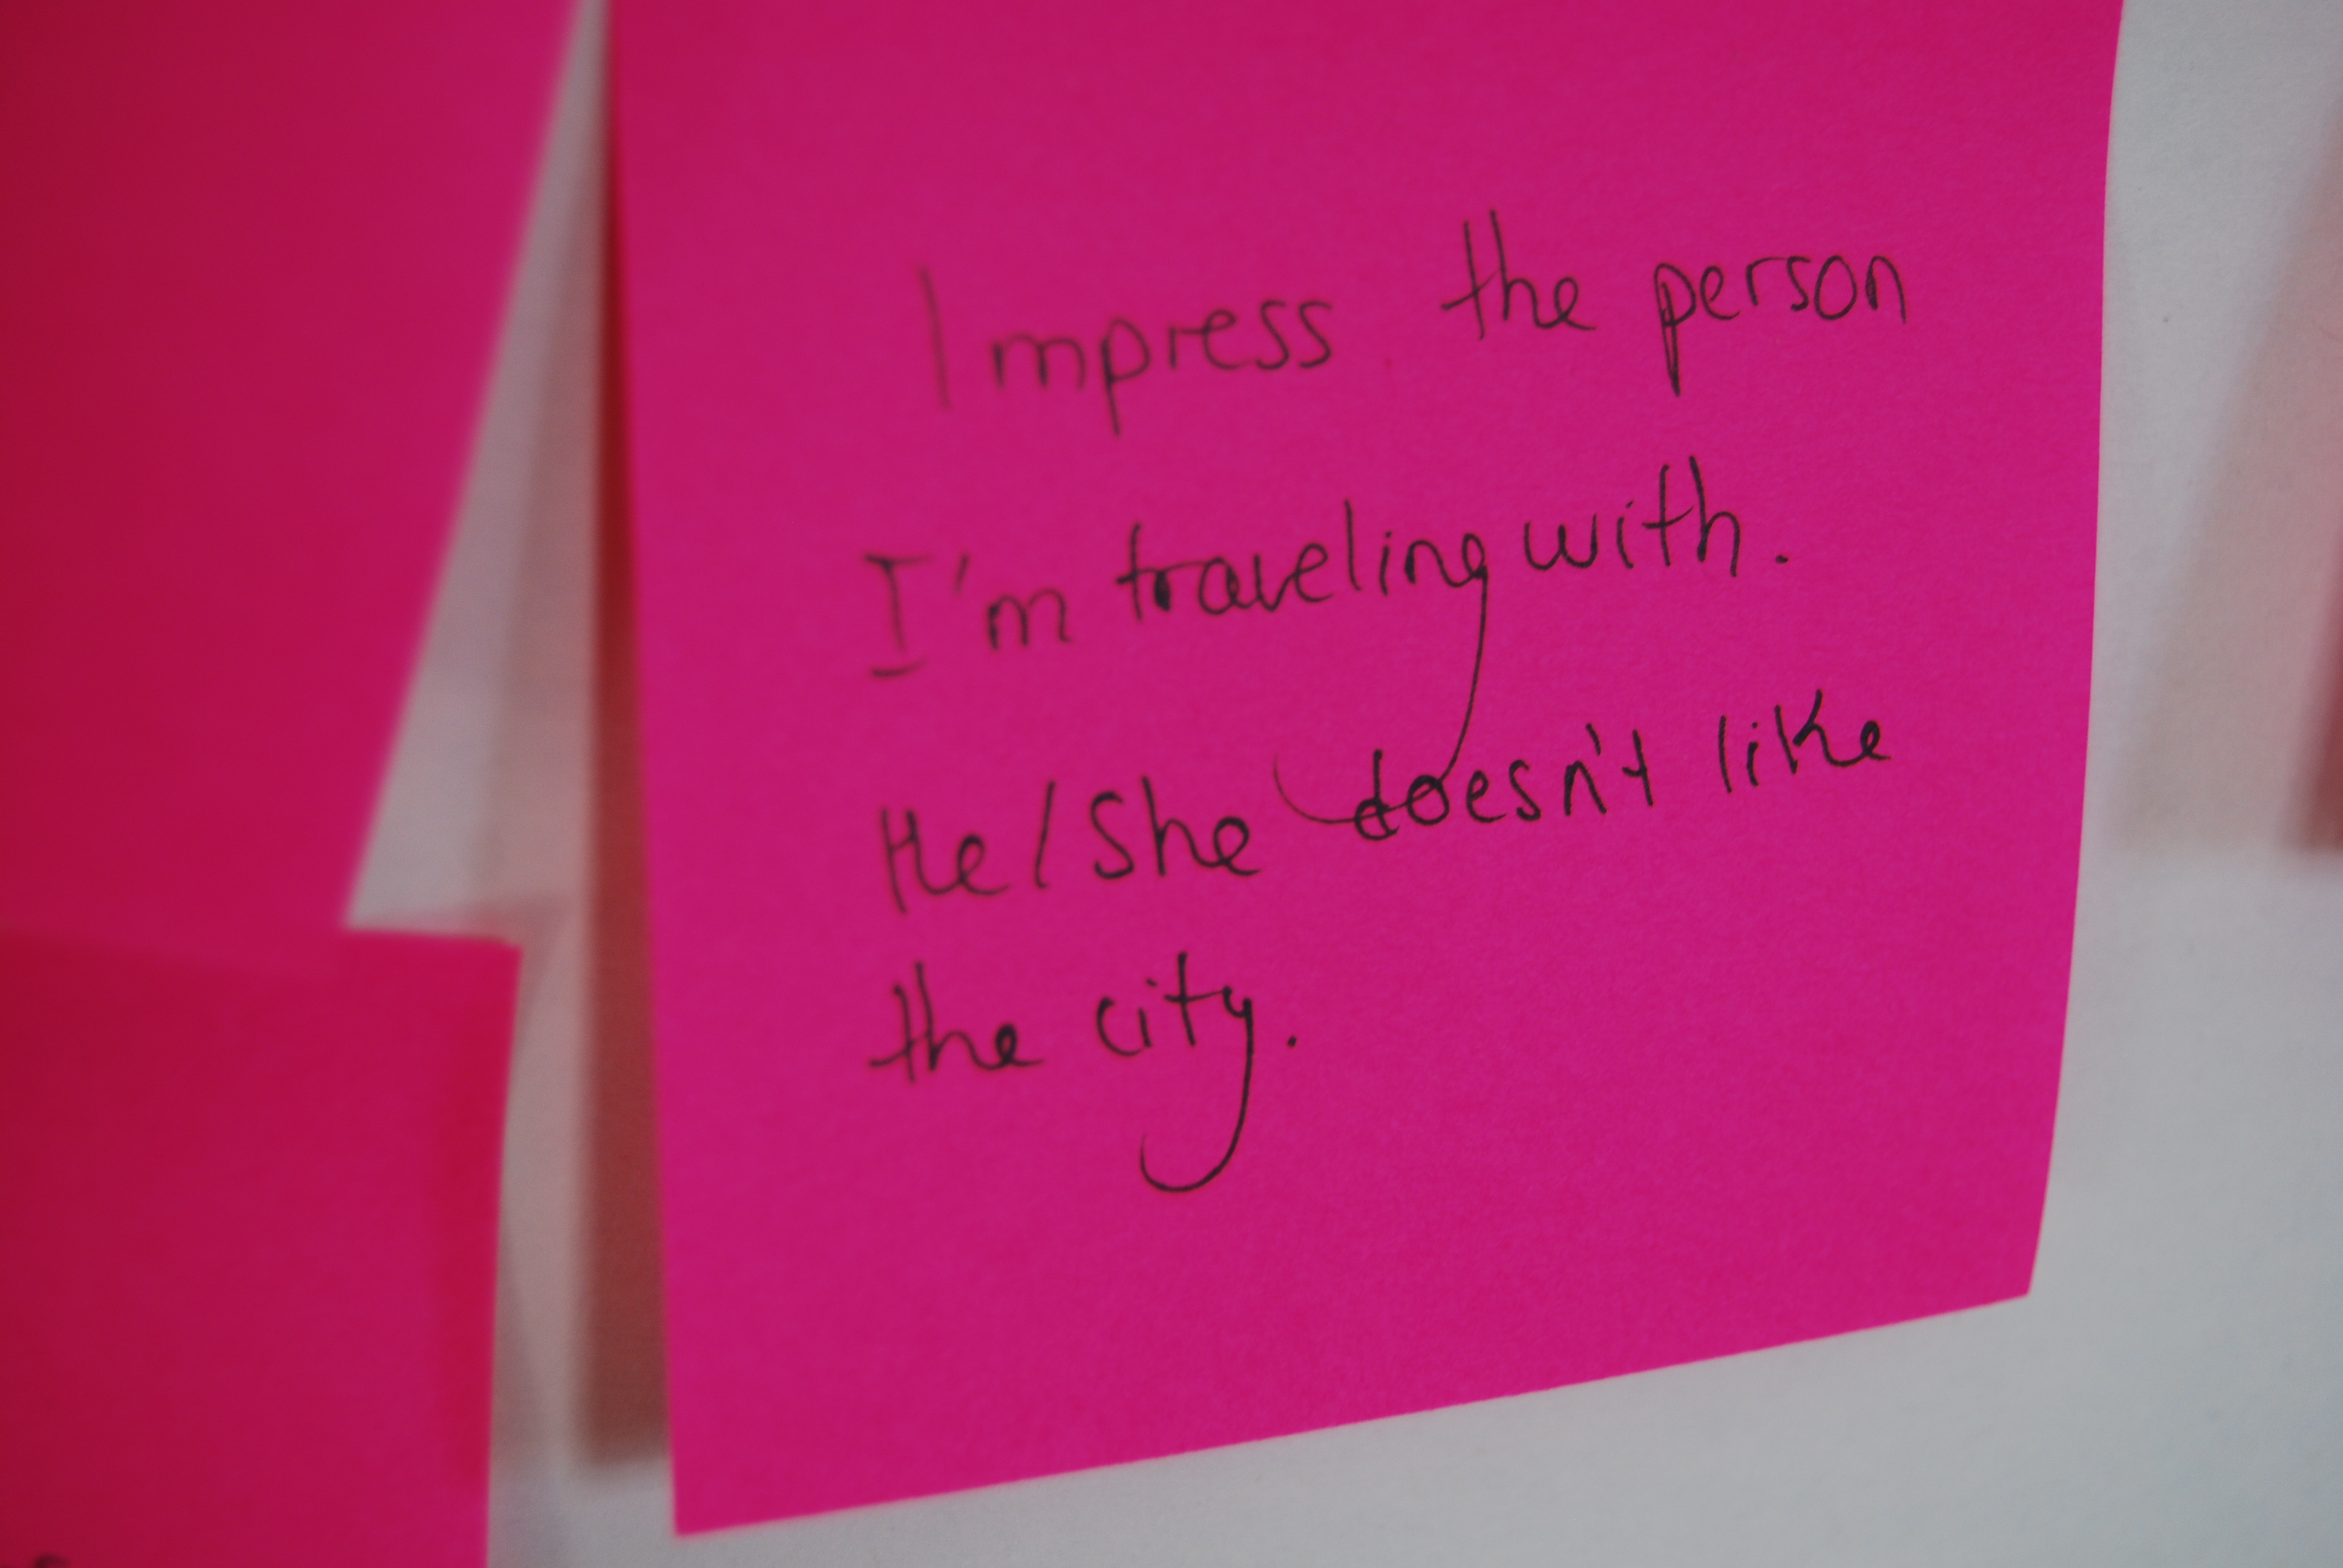 Impress the person
I'm traveling with.
He/She doesn't like
the city.